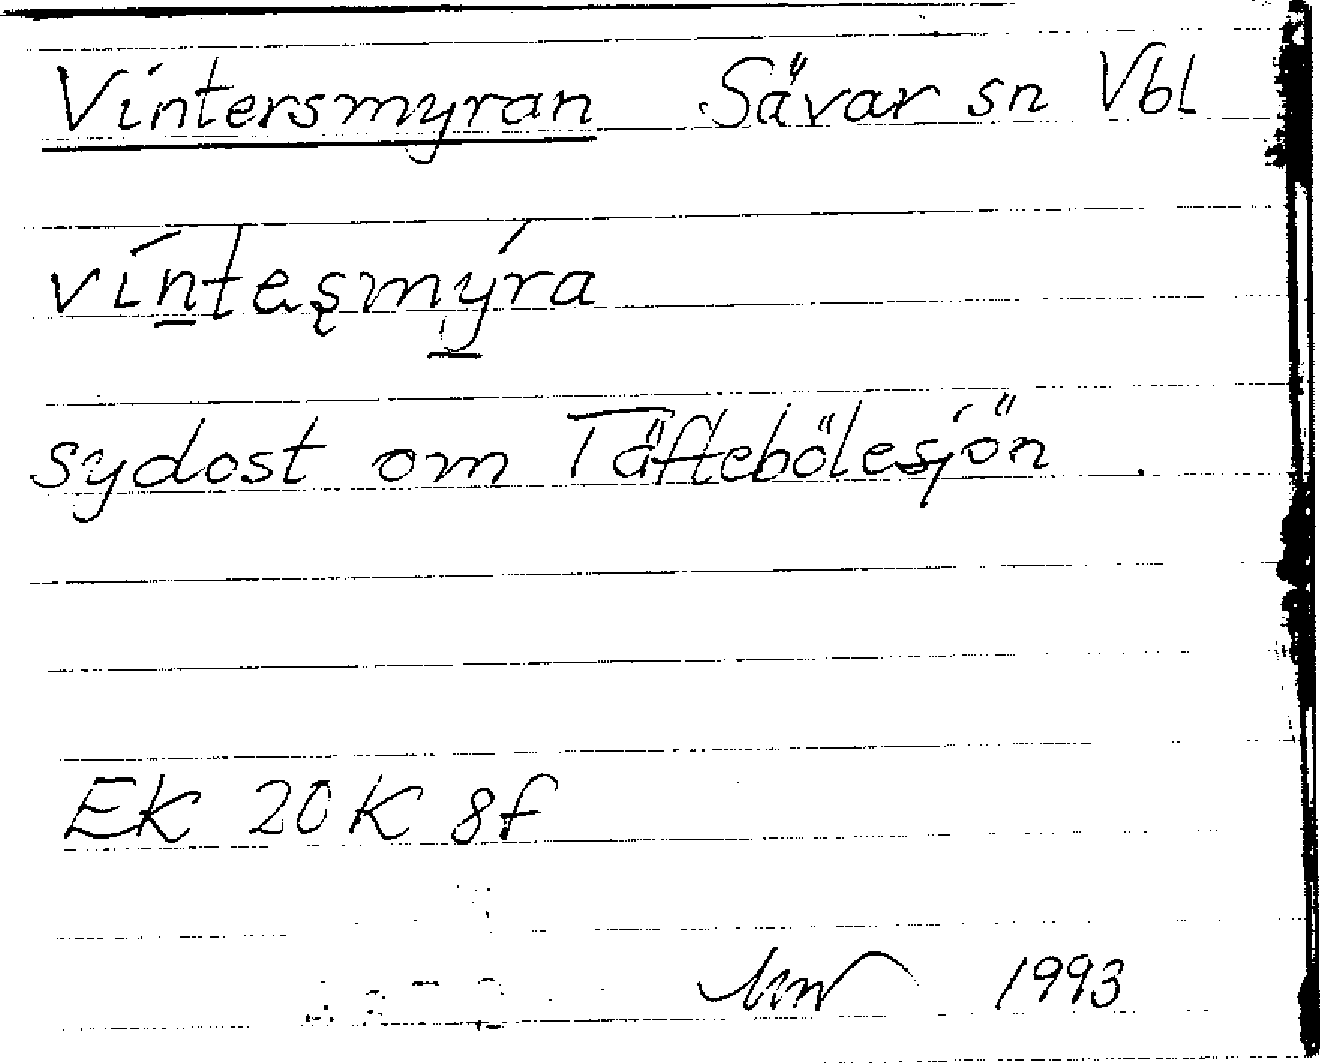 Vintersmyran Sävar sn Vbl
vín̲tes̨mý̲ra
sydost om Täftebölesjön
Ek 20K 8f
1993